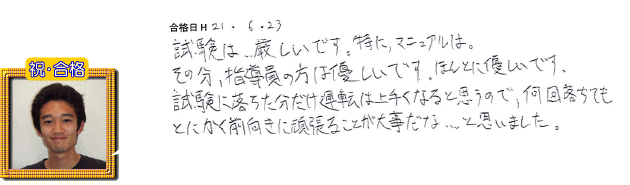 合格日 H 21. 6.23
試験は…厳しいです。特に、マニュアルは。
祝・合格
その分、指導員の方は優しいです。ほんとに優しいです、
試験に落ちた分だけ運転は上手くなると思うので、何回落ちても
とにかく前向きに頑張ることが大事だな…と思いました。